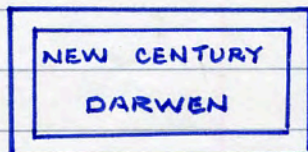 NEW CENTURY
DARWEN